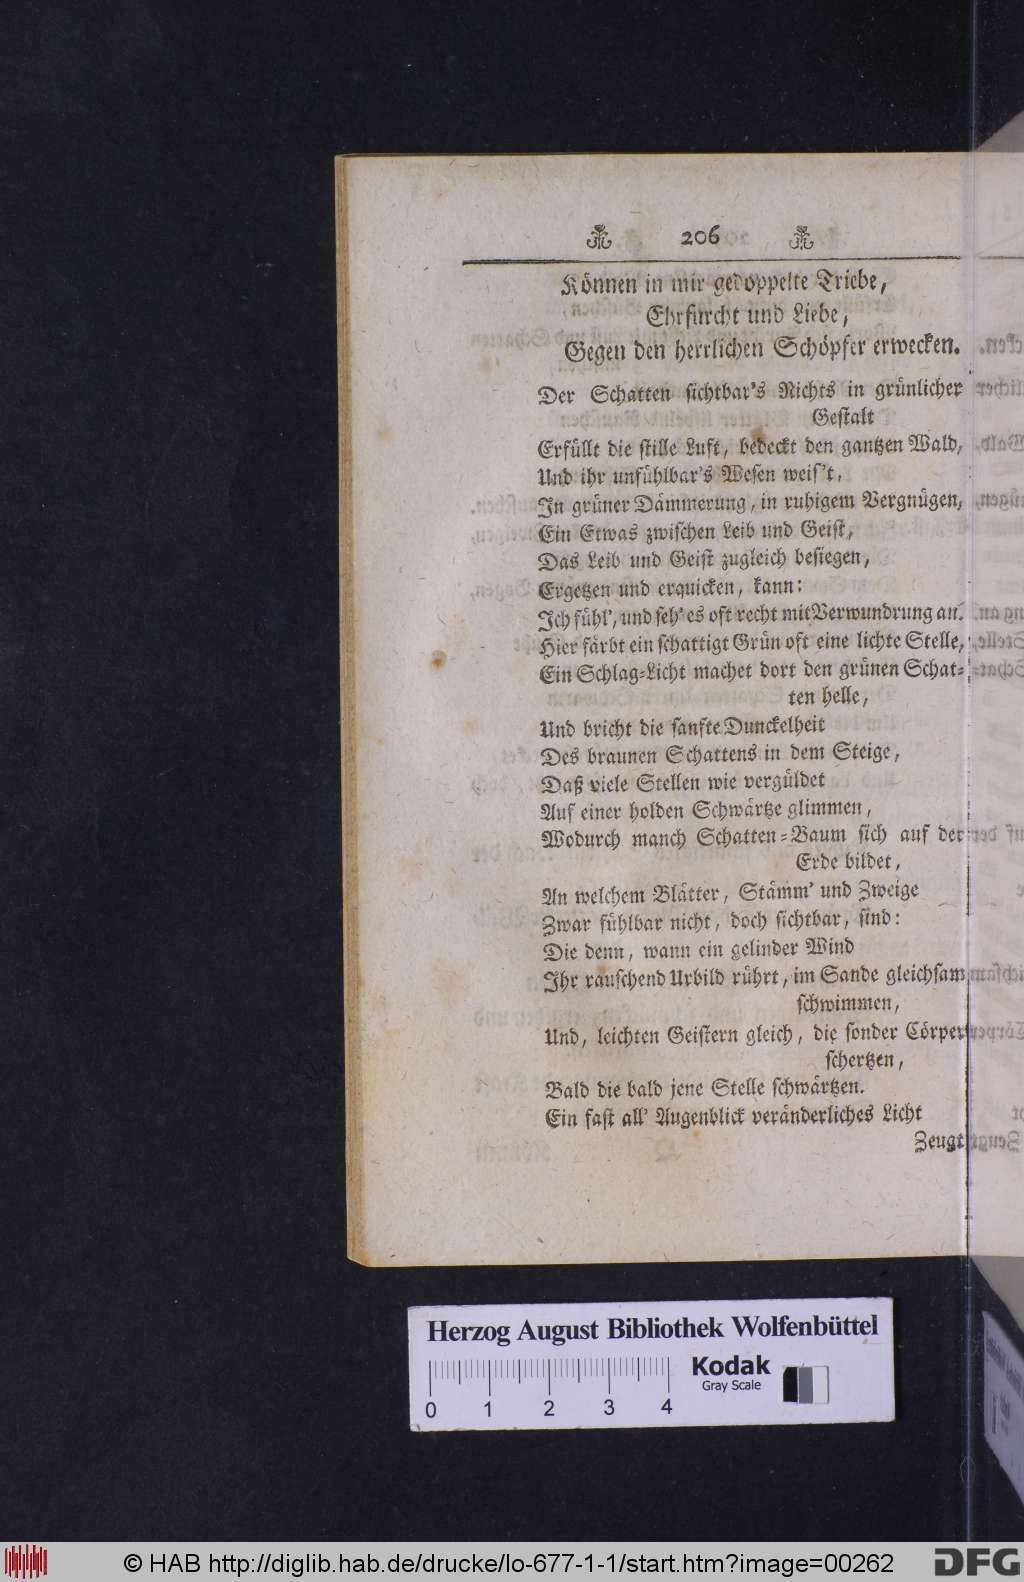 206
Können in mir gedoppelte Triebe,
Ehrfurcht und Liebe,
Gegen den herrlichen Schöpfer erwecken.
Der Schatten sichtbar's Nichts in grünlicher
Gestalt
Erfüllt die stille Luft, bedeckt den gantzen Wald,
Und ihr unfühlbar's Wesen weis't,
In grüner Dämmerung, in ruhigem Vergnügen,
Ein Etwas zwischen Leib und Geist,
Das Leib und Geist zugleich besiegen,
Ergetzen und erquicken, kann:
Ich fühl', und seh' es oft recht mit Verwundrung an.
Hier färbt ein schattigt Grün oft eine lichte Stelle,
Ein Schlag-Licht machet dort den grünen Schat-
ten helle,
Und bricht die sanfte Dunckelheit
Des braunen Schattens in dem Steige,
Daß viele Stellen wie vergüldet
Auf einer holden Schwärtze glimmen,
Wodurch manch Schatten-Baum sich auf der
Erde bildet,
An welchem Blätter, Stämm' und Zweige
Zwar fühlbar nicht, doch sichtbar, sind:
Die denn, wann ein gelinder Wind
Ihr rauschend Urbild rührt, im Sande gleichsam
schwimmen,
Und, leichten Geistern gleich, die sonder Cörper
schertzen,
Bald die bald jene Stelle schwärtzen.
Ein fast all' Augenblick veränderliches Licht
Zeugt
Herzog August Bibliothek Wolfenbüttel
Kodak
Gray Scale
0 1 2 3 4
© HAB http://diglib.hab.de/drucke/lo-677-1-1/start.htm?image=00262
DFG